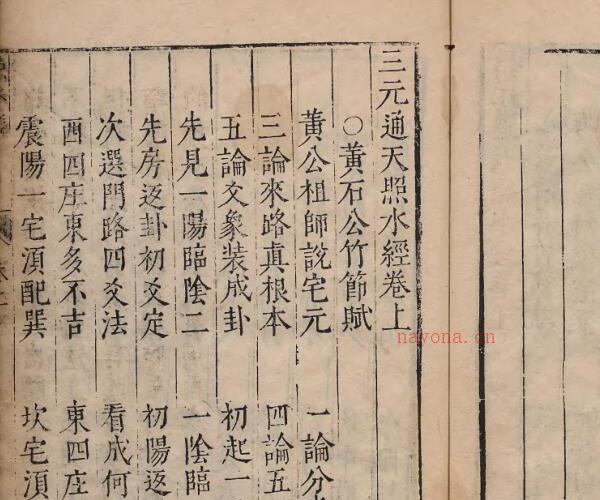 三元通天照水經卷上
○黃石公竹節賦
黃公祖師說宅元 一論分
三論來路真根本 四論五
五論爻象裝成卦 初起一
先見一陽臨陰二 一陰臨
先房返卦初爻定 初陽返
次選門路四爻法 看成何
西四庄東多不吉 東四庄
震陽一宅須配巽 坎宅須
nayona.cn